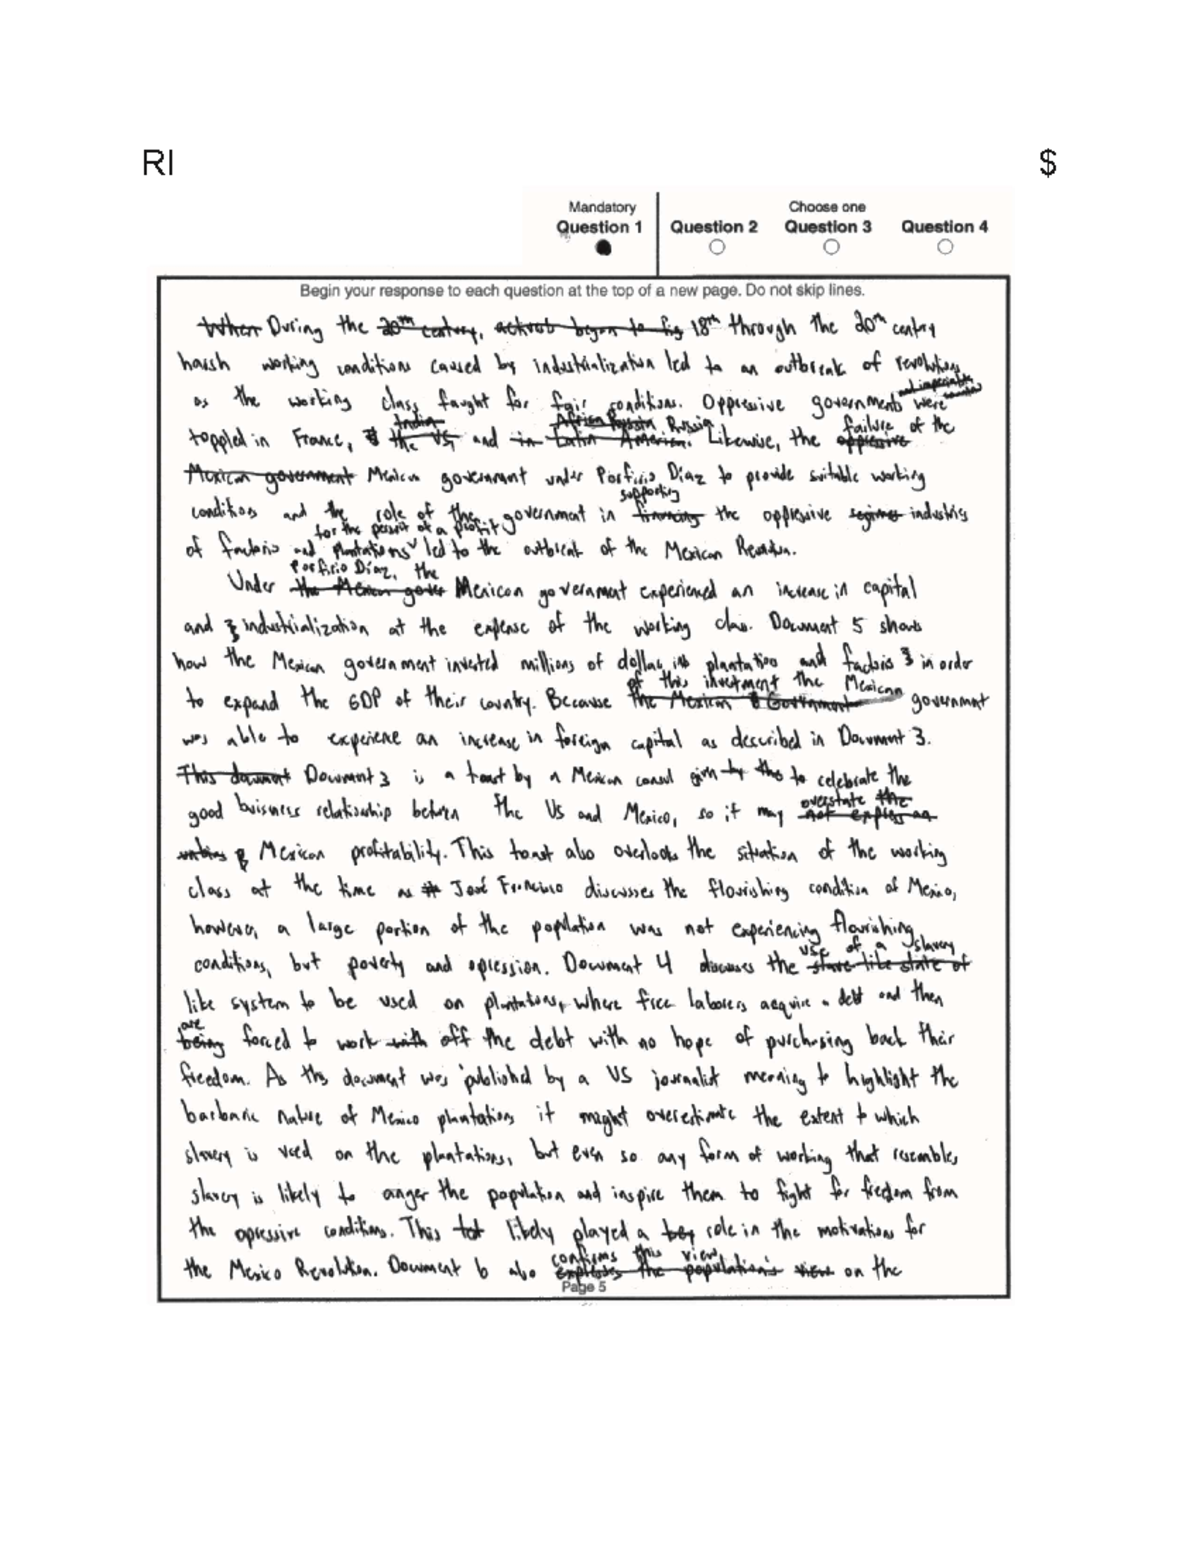 RI
$
Mandatory
Question 1
Choose one
Question 2
Question 3
Question 4
Begin your response to each question at the top of a new page. Do not skip lines.
When During the 20th century, activists began to fig 18th through the 20th century
harsh working conditions caused by industrialization led to an outbreak of revolutions
as the working class faught for fair conditions. Oppressive governments were
toppled in France, India and Russia. Likewise, the failure of the oppressive
Mexican government Mexican government under Porfirio Díaz to provide suitable working
conditions and the role of the government in supporting financing the oppressive regimes industries
of factories and plantations for the persuit of a profit led to the outbreak of the Mexican Revolution.
Under Porfirio Díaz, the the Mexican gover Mexican government experienced an increase in capital
and industrialization at the expense of the working class. Document 5 shows
how the Mexican government invested millions of dollars into plantation and factories in order
to expand the GDP of their country. Because of this investment the Mexican the Mexican Government government
was able to experience an increase in foreign capital as described in Document 3.
This document Document 3 is a toast by a Mexican consul given by the to celebrate the
good buisness relationship between the US and Mexico, so it may overstate the not express an
Mexican profitability. This toast also overlooks the situation of the working
class at the time as José Francisco discusses the flourishing condition of Mexico,
however, a large portion of the population was not experiencing flourishing
conditions, but poverty and opression. Document 4 discusses the use of a slavery slave like state of
like system to be used on plantations, where free laborers acquire a debt and then
are being forced to work with off the debt with no hope of purchasing back their
freedom. As this document was published by a US journalist meaning to highlight the
barbaric nature of Mexico plantations it might overestimate the extent to which
slavery is used on the plantations, but even so any form of working that resembles
slavery is likely to anger the population and inspire them to fight for freedom from
the opressive conditions. This likely played a role in the motivations for
the Mexico Revolution. Document 6 also confirms this view expresses the population's view on the
Page 5